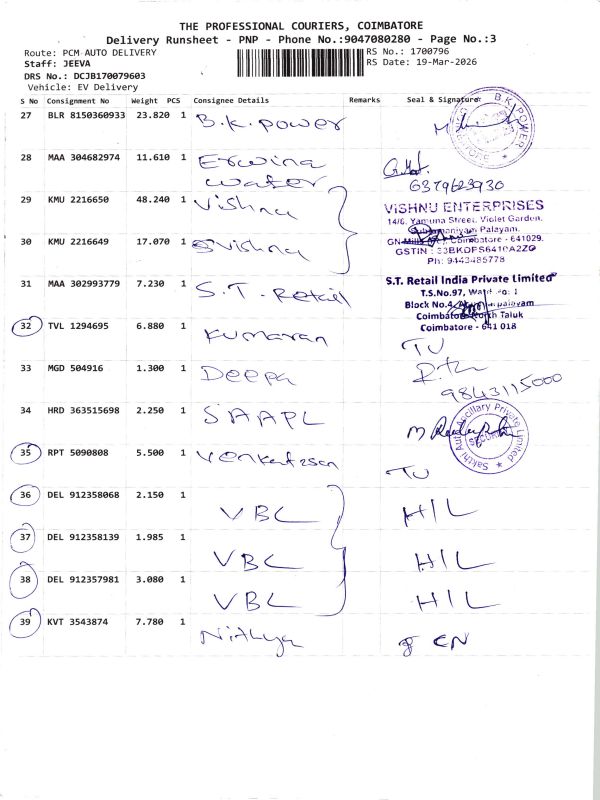 THE PROFESSIONAL COURIERS, COIMBATORE
Delivery Runsheet - PNP - Phone No.:9047080280 - Page No.:3
Route: PCM AUTO DELIVERY
RS No.: 1700796
Staff: JEEVA
RS Date: 19-Mar-2026
DRS No.: DCJB170079603
Vehicle: EV Delivery
S No Consignment No Weight PCS Consignee Details Remarks Seal & Signature
27 BLR 8150360933 23.820 1 B.K. Power
B.K. POWER
28 MAA 304682974 11.610 1
water
6379623930
29 KMU 2216650 48.240 1 Vishnu
VISHNU ENTERPRISES
14/6, Yamuna Street, Violet Garden,
Subramaniyam Palayam,
GN Mills Coimbatore - 641029.
30 KMU 2216649 17.070 1 Vishnu
GSTIN : 33BKDPS6410A2ZG
Ph: 9443485778
31 MAA 302993779 7.230 1 S.T. Retail
S.T. Retail India Private Limited
T.S.No.97, Ward No: 1
Block No.4,
Coimbatore North Taluk
Coimbatore - 641 018
32 TVL 1294695 6.880 1 Kumaran
TU
33 MGD 504916 1.300 1 Deepa
9843115000
34 HRD 363515698 2.250 1 SAAPL
Sakthi Auto Ancillary Private Limited
SECURITY
35 RPT 5090808 5.500 1 Venkatesan
TU
36 DEL 912358068 2.150 1 VBC H/L
37 DEL 912358139 1.985 1 VBC H/L
38 DEL 912357981 3.080 1 VBC H/L
39 KVT 3543874 7.780 1 Nithya CN